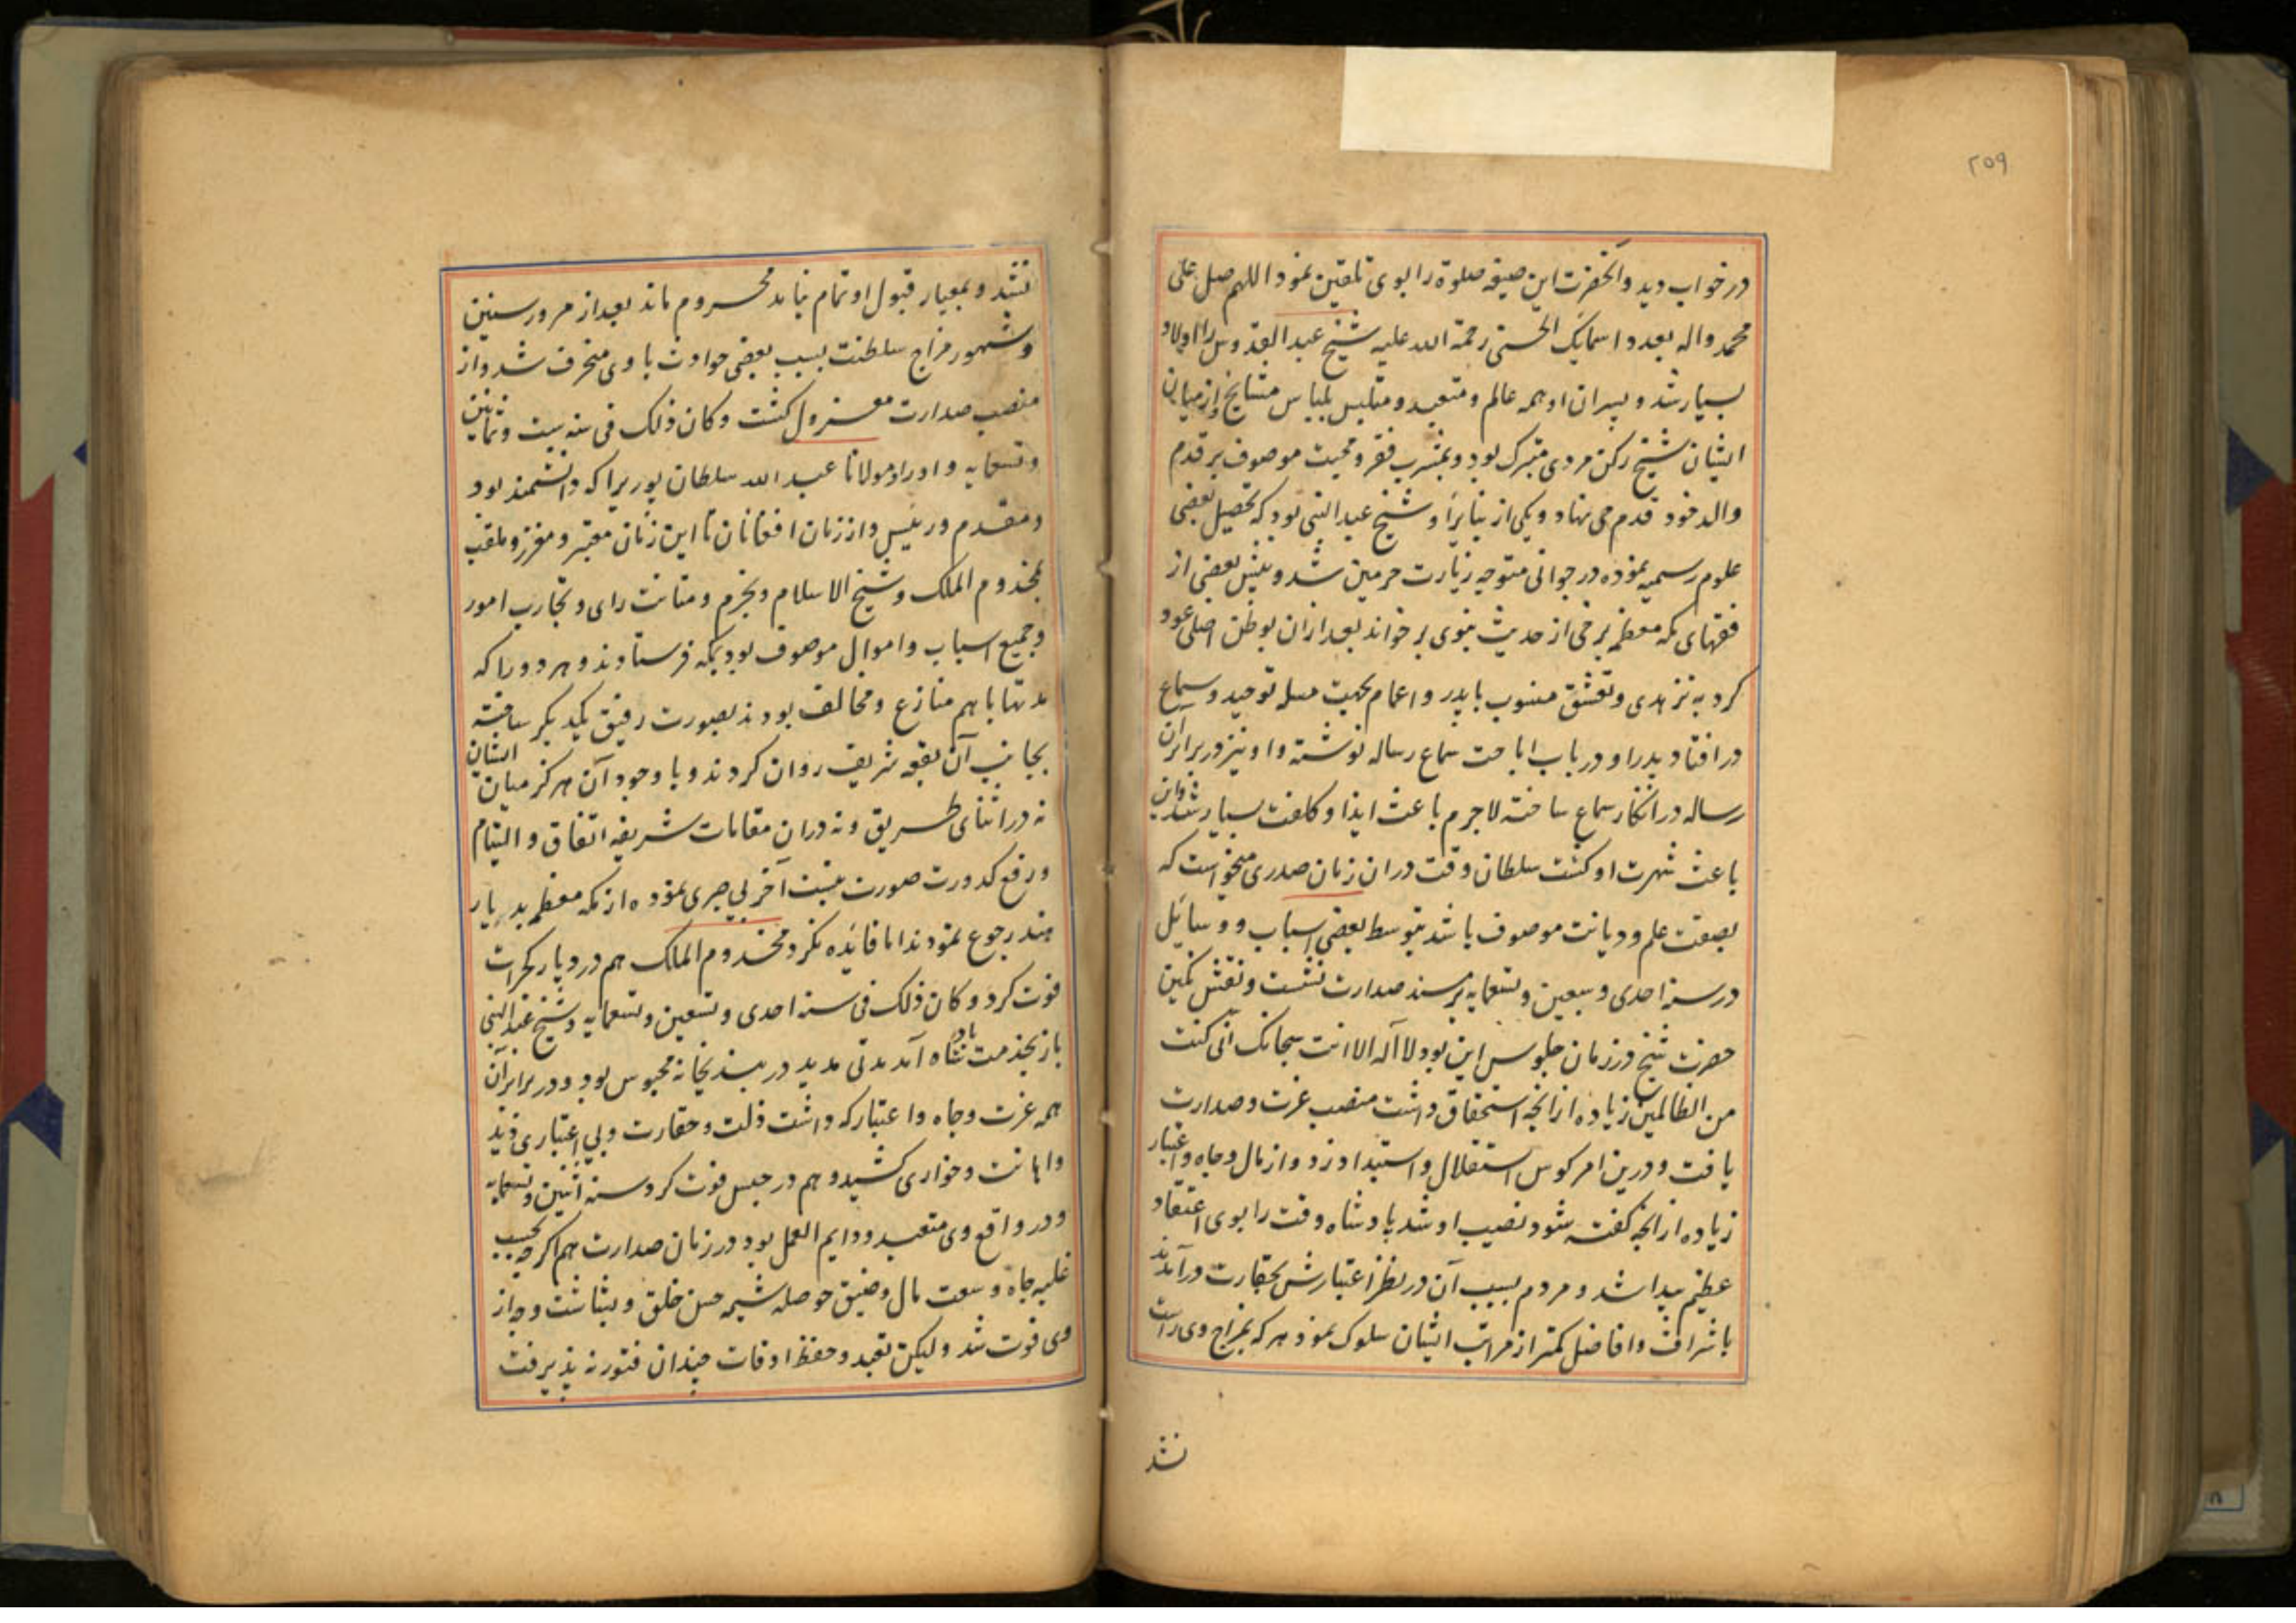 ۲۵۹
در خواب دید و آنحضرت این صیغه صلوة را بوی تلقین نمود اللهم صل علی
محمد و اله بعدد اسمایک الحسنی رحمة الله علیه شیخ عبد القدوس را اولاد
بسیار شد و پسران او همه عالم و متعبد و متلبس بلباس مشایخ و از میان
ایشان شیخ رکن مردی متبرک بود و بمشرب فقر و محبت موصوف بر قدم
والد خود قدم می نهاد و یکی از بنایر او شیخ عبد النبی بود که تحصیل بعضی
علوم رسمیه نموده در جوانی متوجه زیارت حرمین شد و پیش بعضی از
فقهای مکه معظمه برخی از حدیث نبوی بر خواند بعد ازان بوطن اصلی عود
کرد به تزهدی و تقشف منسوب با پدر و اعمام بجهت مسله توحید و سماع
در افتاد پدر او در باب اباحت سماع رساله نوشته و او نیز در برابر آن
رساله در انکار سماع ساخته لاجرم باعث ایذا و کلفت بسیار شد و این
باعث شهرت او کشت سلطان وقت دران زمان صدری میخواست که
بصفت علم و دیانت موصوف باشد بتوسط بعضی اسباب و وسایل
در سنه احدی و سبعین و تسعمایه بر مسند صدارت نشست و نقش نکین
حضرت شیخ در زمان جلوس این بود لا اله الا انت سبحانک انی کنت
من الظالمین زیاده از انچه استحقاق داشت منصب عزت و صدارت
یافت و درین امر کوس استقلال و استبداد زد و از مال و جاه و اعتبار
زیاده از انچه کفته شود نصیب او شد بادشاه وقت را بوی اعتقاد
عظیم پیدا شد و مردم بسبب آن در نظر اعتبارش بحقارت در آمدند
با شراف و افاضل کمتر از مراتب ایشان سلوک نمود هر که بمزاج وی راست
نشد
نشد و بمعیار قبول او تمام نیامد محروم ماند بعد از مرور سنین
و شهور مزاج سلطنت بسبب بعضی حوادث با وی منحرف شد و از
منصب صدارت معزول کشت و کان ذلک فی سنه ست و ثمانین
و تسعمایه و او را و مولانا عبد الله سلطان پوری را که دانشمند بود
و مقدم و رئیس و از زمان افغانان تا این زمان معتبر و معزز و ملقب
بمخدوم الملک و شیخ الاسلام و بحزم و متانت رای و تجارب امور
و جمیع اسباب و اموال موصوف بود بمکه فرستادند و هر دو را که
مدتها با هم منازع و مخالف بودند بصورت رفیق یکدیکر ساخته
بجانب آن بقعه شریف روان کردند و با وجود آن هرکز میان ایشان
نه در اثنای طریق و نه دران مقامات شریفه اتفاق و التیام
و رفع کدورت صورت نبست آخر بی صبری نموده از مکه معظمه بدیار
هند رجوع نمودند اما فایده نکرد مخدوم الملک هم در دیار کجرات
فوت کرد و کان ذلک فی سنه احدی و تسعین و تسعمایه و شیخ عبد النبی
باز بخدمت بادشاه آمد مدتی مدید در بندیخانه محبوس بود و در برابر آن
همه عزت و جاه و اعتبار که داشت ذلت و حقارت و بی اعتباری دید
و اهانت و خواری کشید و هم در حبس فوت کرد سنه اثنین و تسعمایه
و در واقع وی متعبد و دایم العمل بود در زمان صدارت هم اکرچه بحسب
غلبه جاه و سعت مال و ضیق حوصله شیمه حسن خلق و بشاشت وجه از
وی فوت شد و لیکن تعبد و حفظ اوقات چندان فتور نه پذیرفت